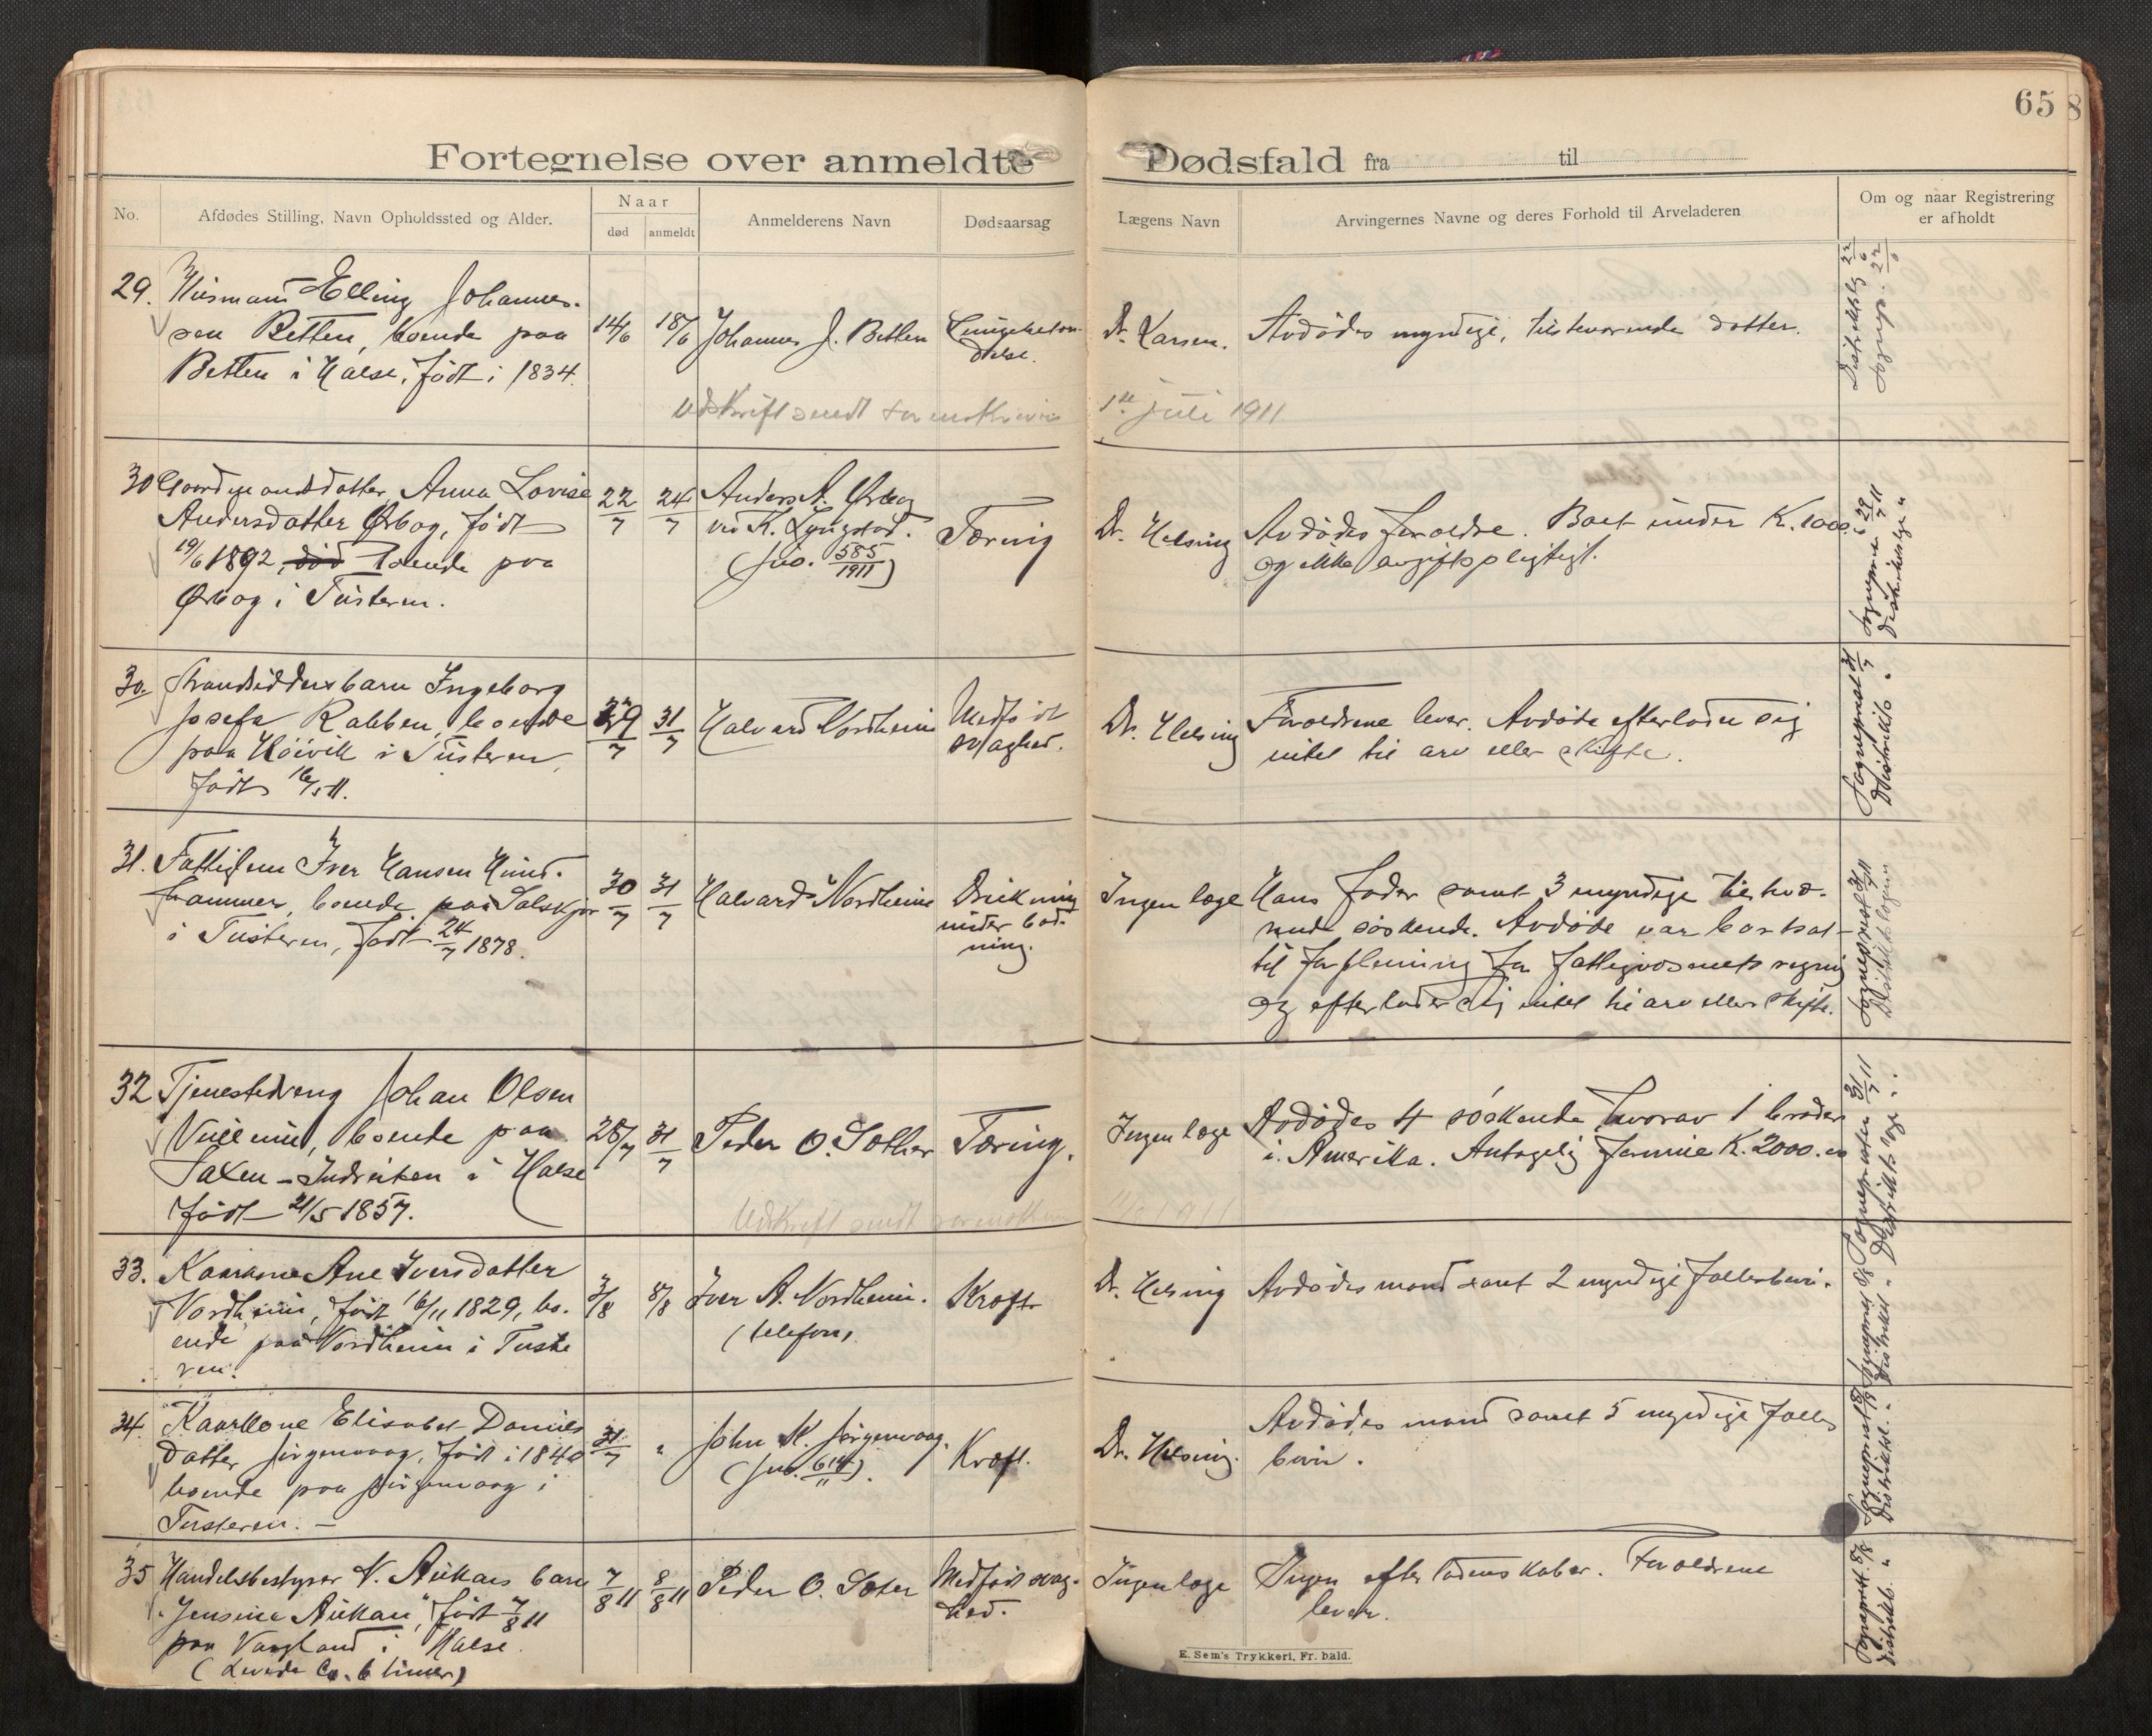 65
Fortegnelse over anmeldte Dødsfald fra til
No.
Afdødes Stilling, Navn Opholdssted og Alder.
Naar
død
anmeldt
Anmelderens Navn
Dødsaarsag
Lægens Navn
Arvingernes Navne og deres Forhold til Arveladeren
Om og naar Registrering
er afholdt
29. Husmand Elling Johannes-
sen Betten, boende paa
Betten i Halse, født i 1834.
14/6
18/6
Johannes J. Betten
Lungebetæn-
delse.
Dr. Larsen.
Avdødes myndige, tilstedeværende datter.
Udskrift sendt sorenskriveren 1ste juli 1911
30 Gaardmandsdatter Anna Lovise
Andersdatter Ørbog, født
19/6 1892, død boende paa
Ørbog i Tusteren.
22/7
24/7
Anders A. Ørbog
ved K. Lyngstad.
(jno. 585/1911)
Tæring
Dr. Helsing
Avdødes forældre. Boet under K. 1000
og ikke avgiftspligtigt.
Sogneprest 29/7 11
Distriktslæge "
30. Strandsidders barn Ingeborg
Josefa Rabben, boende
paa Höivik i Tusteren,
født 16/5 11.
29/7
31/7
Halvard Nordheim
Medfødt
svaghed.
Dr. Helsing
Forældrene lever. Avdøde efterlader sig
intet til arv eller skifte.
Sogneprest 31/7
Distriktslæge "
31. Fattiglem Iver Hansen Hund-
hammer, boende paa Solskjær
i Tusteren, født 24/7 1878.
30/7
31/7
Halvard Nordheim
Drukning
under bad-
ning.
Ingen læge
Hans fader samt 3 myndige tilstedvæ-
rende søskende. Avdøde var bortsat
til forpleining for fattigvæsenets regning
og efterlader sig intet til arv eller skifte.
Sogneprest 31/7 11
Distriktslægen
32 Tjenestedreng Johan Olsen
boende paa
i Halse
født 21/5 1857.
28/7
31/7
Peder O. Sæther
Tæring.
Ingen læge
Avdødes 4 søskende, hvorav 1 broder
i Amerika. Antagelig formue K. 2000.00
31/7 11
Udskrift sendt
1911
33. Kaarkone Ane Iversdatter
Nordheim, født 16/11 1829, bo-
ende paa Nordheim i Tuste
ren.
3/8
8/8
Iver A. Nordheim.
(telefon)
Kræft
Dr. Helsing
Avdødes mand samt 2 myndige fællesbørn.
34. Kaarkone Elisabet Daniels
datter Jörgenvaag, født i 1840
boende paa Jörgenvaag i
Tusteren. —
31/7
"
John K. Jörgenvaag.
(jno. 614/11).
Kræft.
Dr. Helsing.
Avdødes mand samt 5 myndige fælles
børn.
35 Handelsbestyrer N. Aukans barn
"Jensine Aukan", født 7/8 11
paa Vaagland i Halse.
(Levede ca. 6 timer)
7/8 11
8/8 11
Peder O. Sæter
Medfødt svag-
hed.
Ingen læge
Ingen efterladenskaber. Forældrene
lever.
Sogneprest 8/8
Distriktsl. "
E. Sem's Trykkeri, Fr. hald.